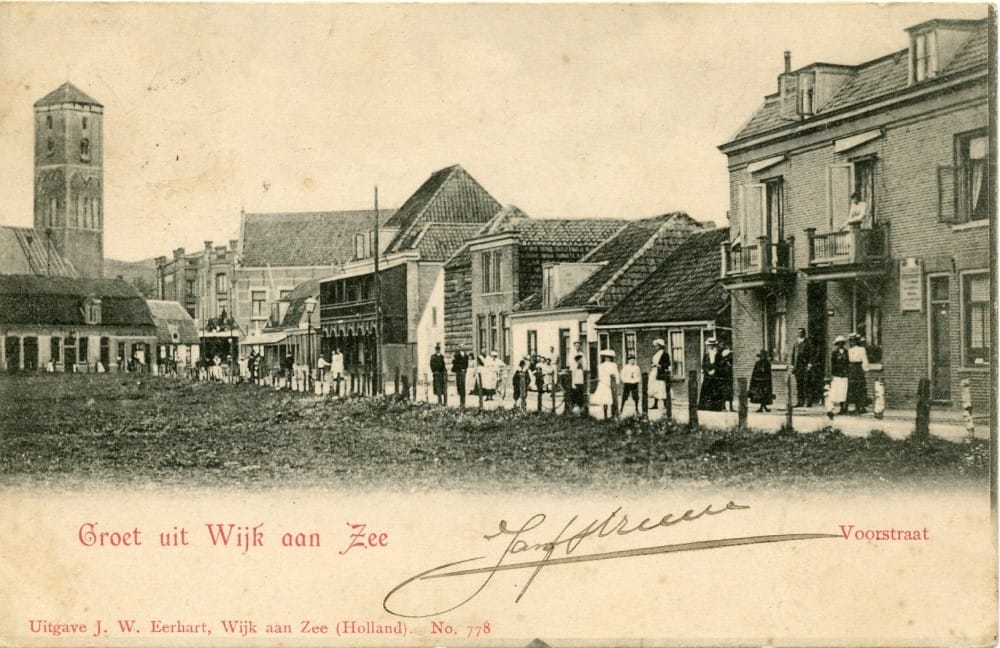 Groet uit Wijk aan Zee
Voorstraat
Uitgave J. W. Eerhart, Wijk aan Zee (Holland). No. 778